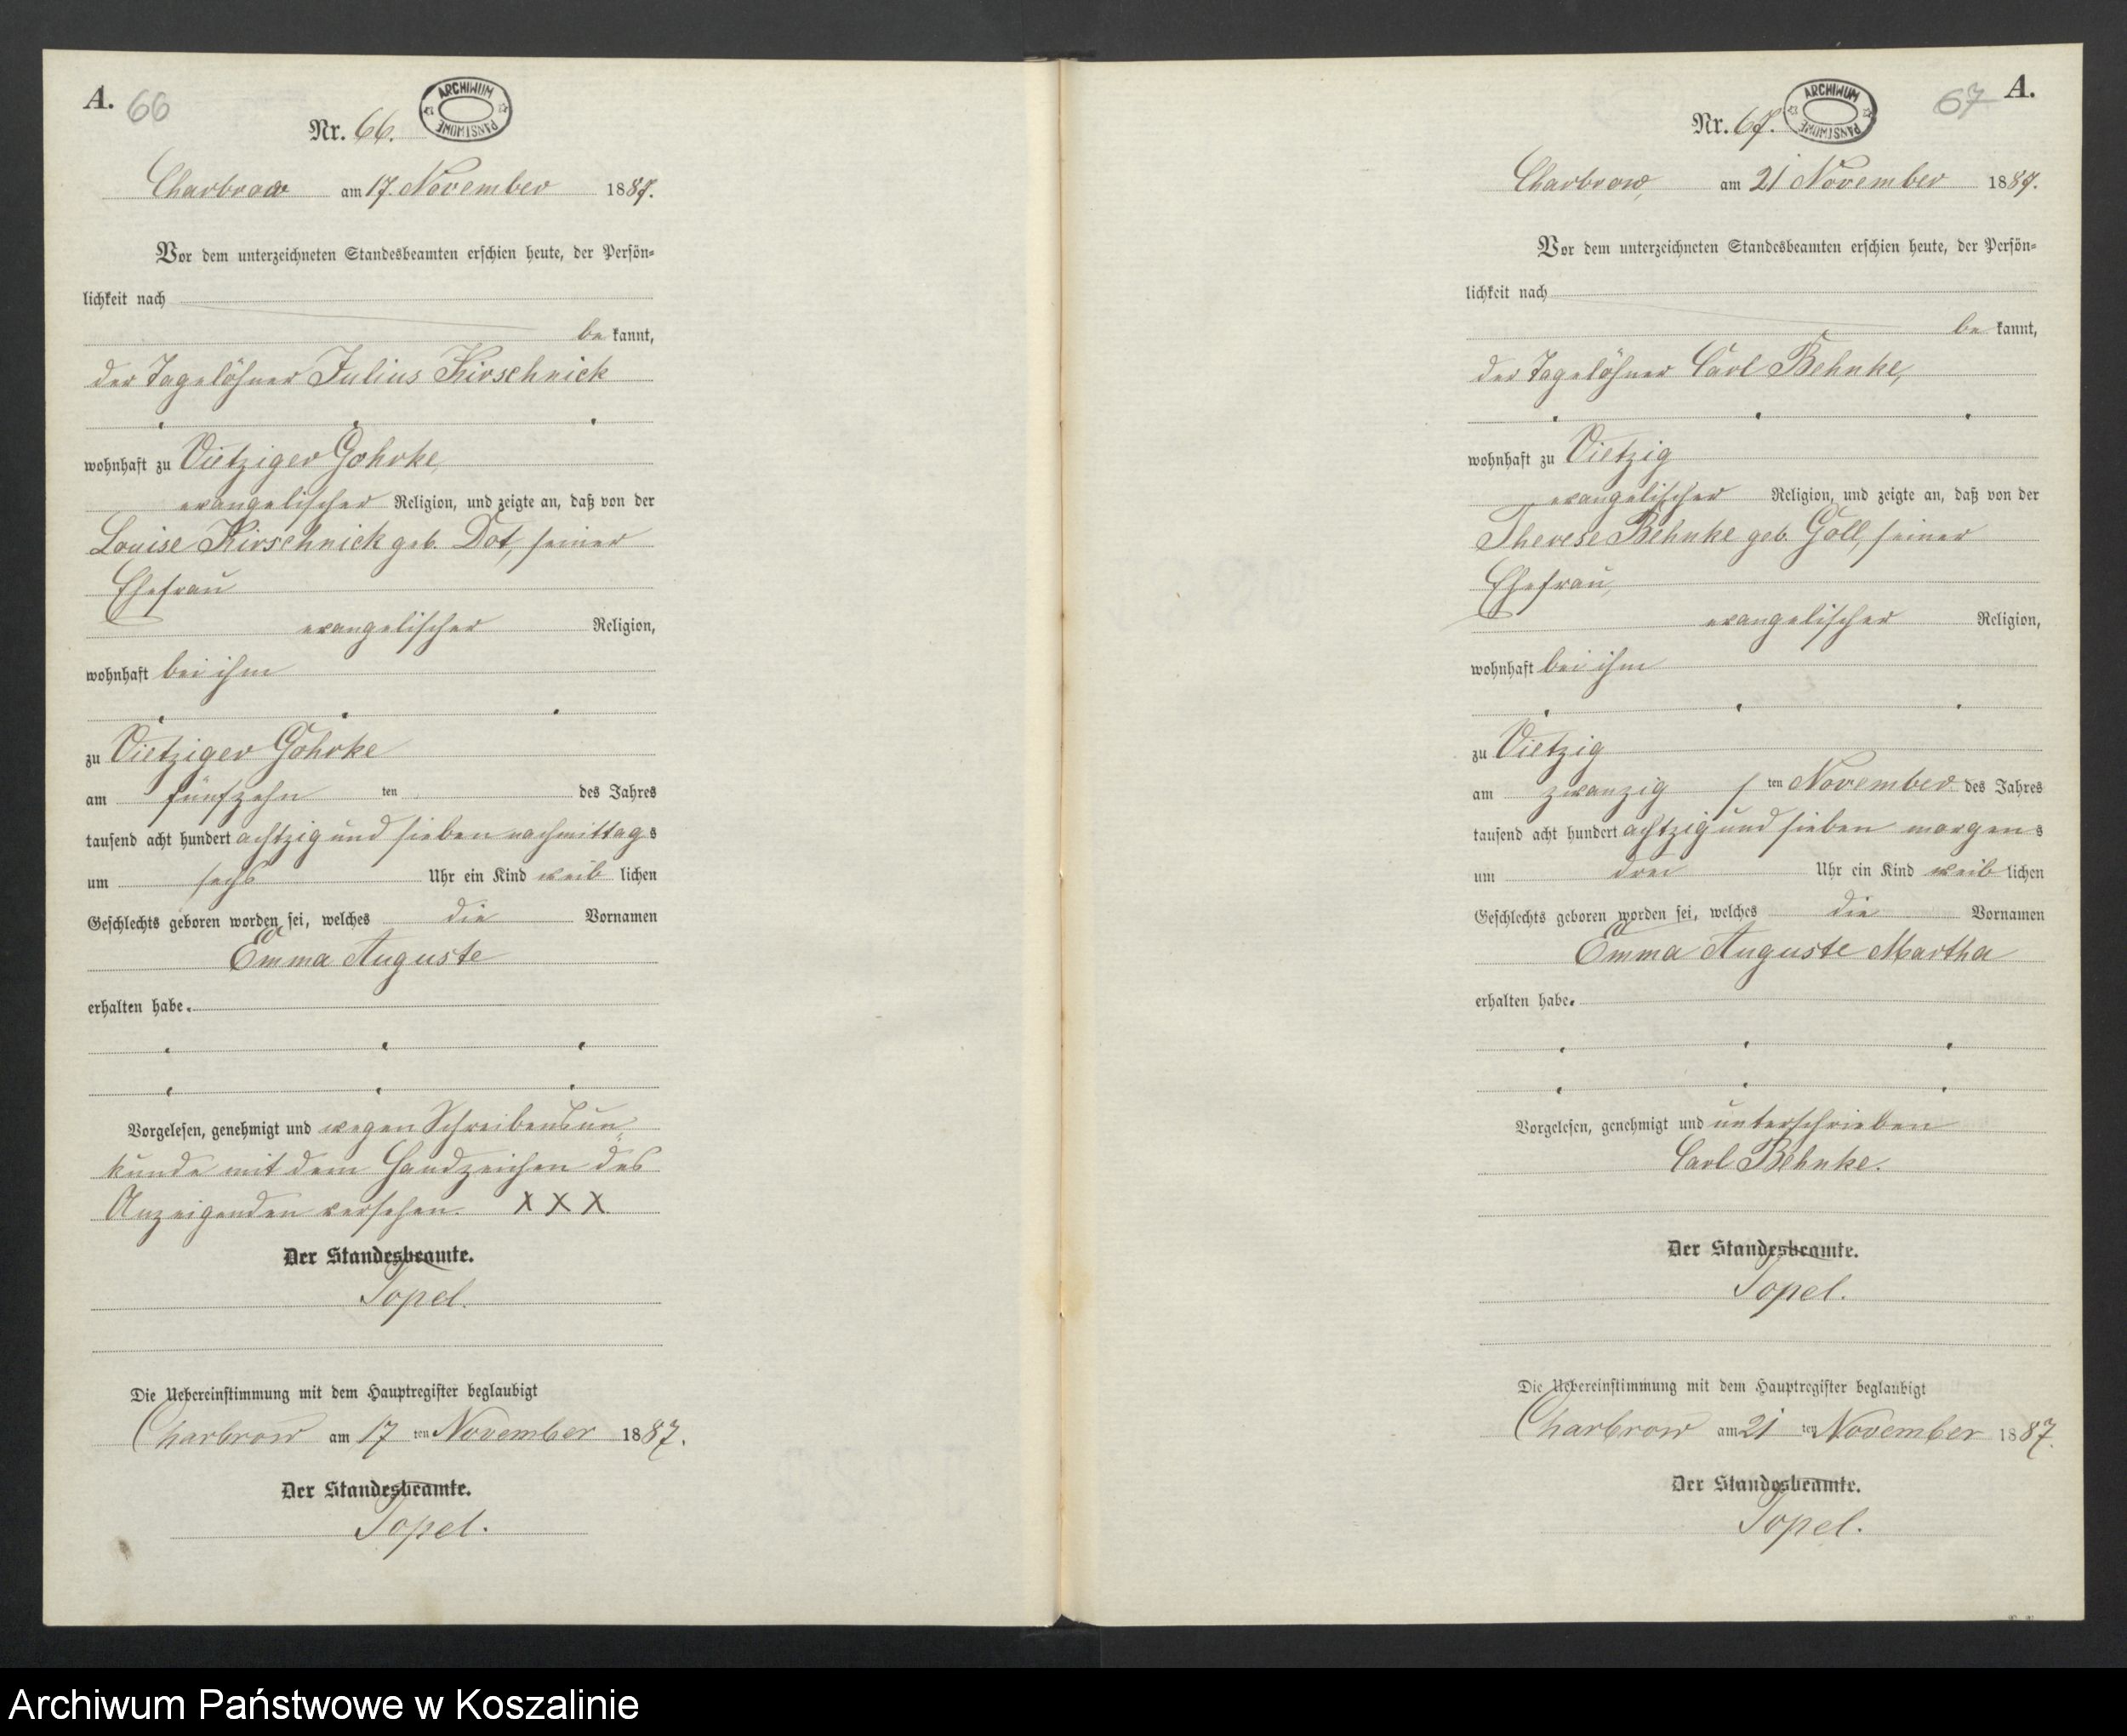 A. 66
Nr. 66.
ARCHIWUM PAŃSTWOWE
Charbrow am 17. November 1887.
Vor dem unterzeichneten Standesbeamten erschien heute, der Persön-
lichkeit nach
be kannt,
der Tagelöhner Julius Kirschnick
wohnhaft zu Vietziger Gohrke,
evangelischer Religion, und zeigte an, daß von der
Louise Kirschnick geb. Dot, seiner
Ehefrau
evangelischer Religion,
wohnhaft bei ihm
zu Vietziger Gohrke
am fünfzehn ten des Jahres
tausend acht hundert achtzig und sieben nachmittags
um sechs Uhr ein Kind weib lichen
Geschlechts geboren worden sei, welches die Vornamen
Emma Auguste
erhalten habe.
Vorgelesen, genehmigt und wegen Schreibensun-
kunde mit dem Handzeichen des
Anzeigenden versehen. X X X
Der Standesbeamte.
Topel.
Die Uebereinstimmung mit dem Hauptregister beglaubigt
Charbrow am 17 ten November 1887.
Der Standesbeamte.
Topel.
67 A.
Nr. 67.
ARCHIWUM PAŃSTWOWE
Charbrow, am 21 November 1887.
Vor dem unterzeichneten Standesbeamten erschien heute, der Persön-
lichkeit nach
be kannt,
der Tagelöhner Carl Behnke,
wohnhaft zu Vietzig
evangelischer Religion, und zeigte an, daß von der
Therese Behnke geb. Goll, seiner
Ehefrau,
evangelischer Religion,
wohnhaft bei ihm
zu Vietzig
am zwanzig ten November des Jahres
tausend acht hundert achtzig und sieben morgens
um drei Uhr ein Kind weib lichen
Geschlechts geboren worden sei, welches die Vornamen
Emma Auguste Martha
erhalten habe.
Vorgelesen, genehmigt und unterschrieben
Carl Behnke.
Der Standesbeamte.
Topel.
Die Uebereinstimmung mit dem Hauptregister beglaubigt
Charbrow am 21 ten November 1887.
Der Standesbeamte.
Topel.
Archiwum Państwowe w Koszalinie